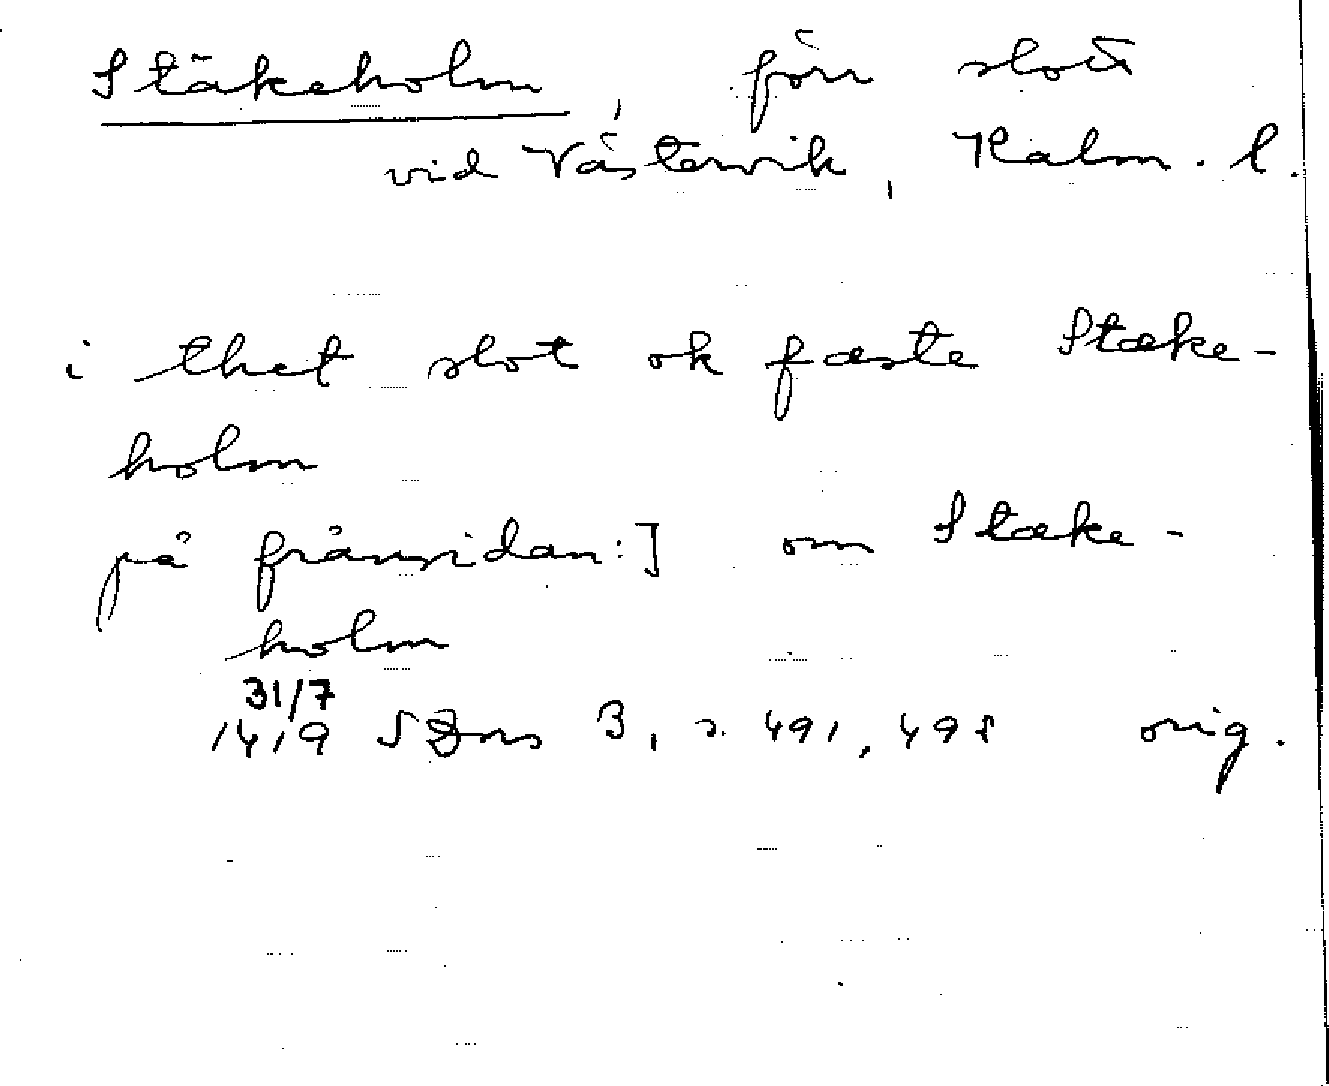 Stäkeholm, förr slott
vid Västervik, Kalm. l.
i thet slot ok fæste Stæke-
holm
på frånsidan:] om Stæke-
holm
31/7
1419 SDns 3, s. 491, 498 orig.